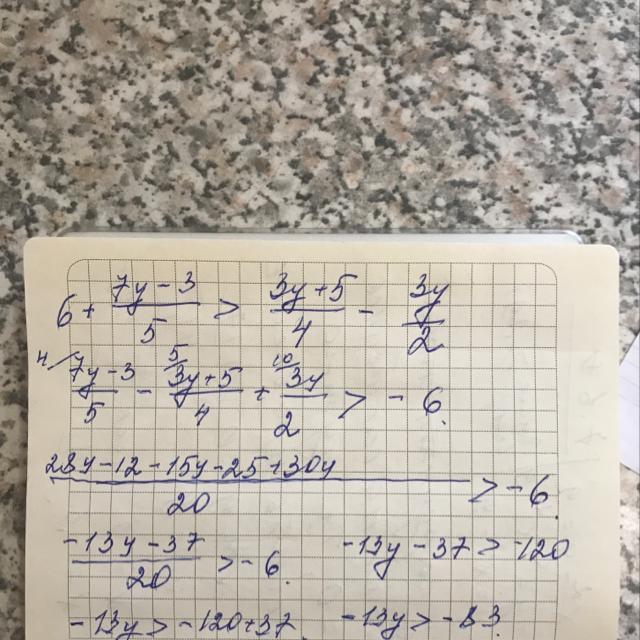 6 + (7y - 3)/5 > (3y + 5)/4 - 3y/2
4/ (7y - 3)/5 - 5/ (3y + 5)/4 + 10/ 3y/2 > - 6.
(28y - 12 - 15y - 25 + 30y)/20 > - 6.
(-13y - 37)/20 > - 6. -13y - 37 > -120
-13y > -120 + 37. -13y > -83.